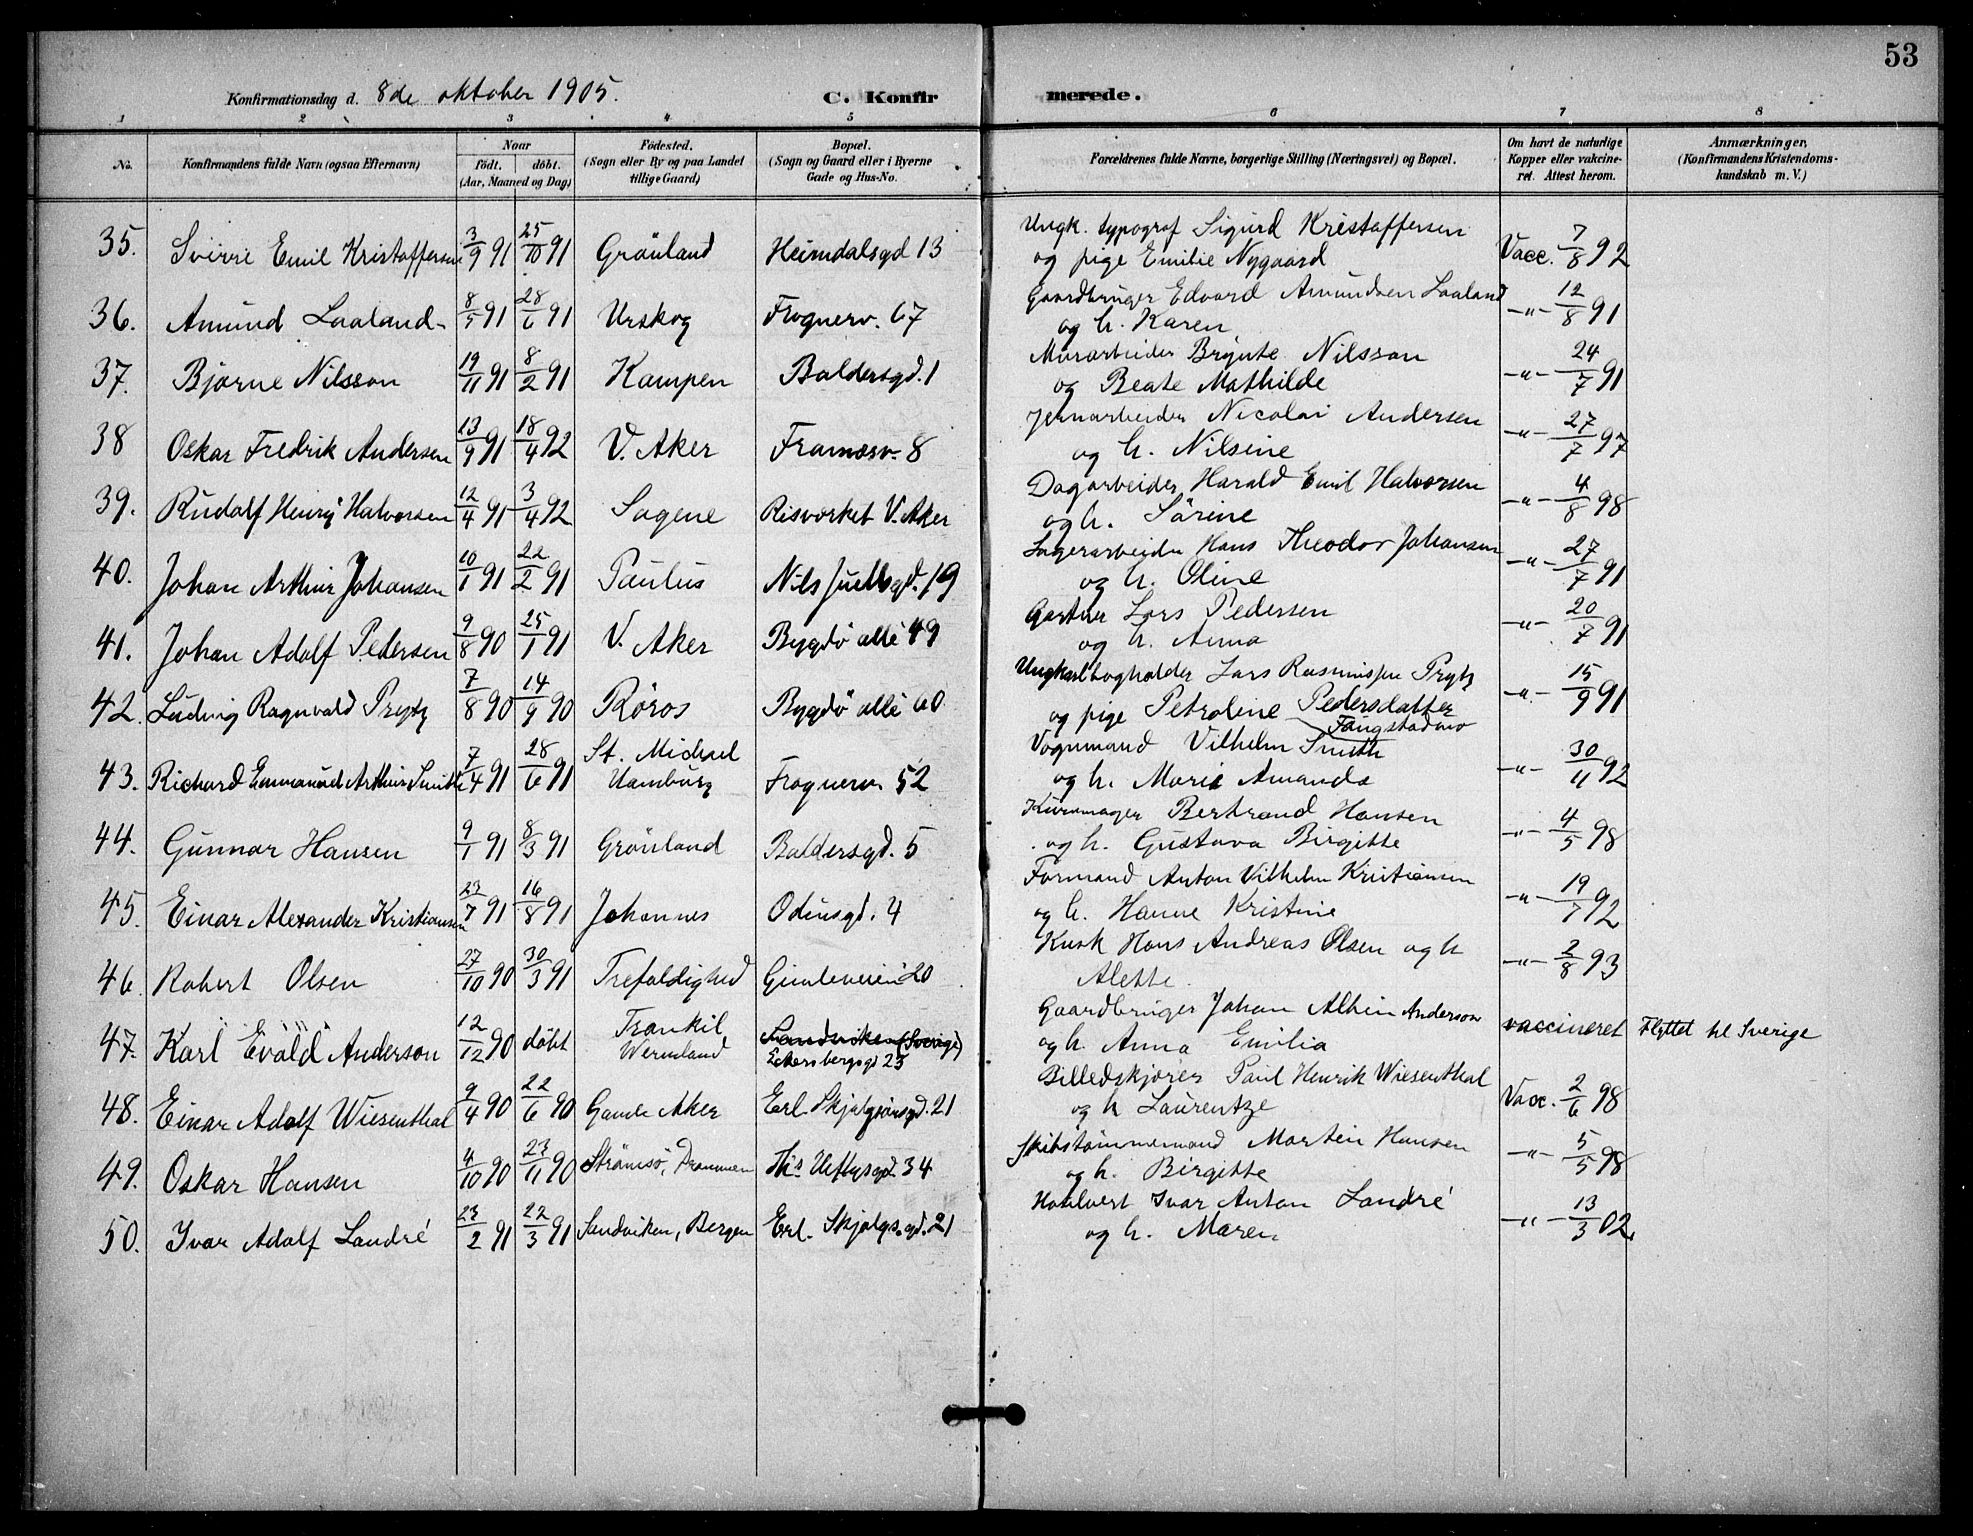 53
Konfirmationsdag d. 8de oktober 1905. C. Konfirmerede.
1 2 3 4 5 6 7 8
No. Konfirmandens fulde Navn (ogsaa Efternavn) Naar födt. döbt. (Aar, Maaned og Dag) Födested. (Sogn eller By og paa Landet tillige Gaard) Bopæl. (Sogn og Gaard eller i Byerne Gade og Hus-No. Forældrenes fulde Navne, borgerlige Stilling (Næringsvei) og Bopæl. Om havt de naturlige Kopper eller vakcineret. Attest herom. Anmærkninger, (Konfirmandens Kristendomskundskab m. V.)
35. Sverre Emil Kristoffersen 3/9 91 25/10 91 Grönland Heimdalsgd 13 Ungk. typograf Sigurd Kristoffersen Vacc. 7/8 92
og pige Emilie Nygaard
36. Amund Laaland 8/5 91 28/6 91 Urskog Frognerv. 67 Gaardbruger Edvard Amundsen Laaland -"- 12/8 91
og h. Karen
37. Bjarne Nilsson 19/11 91 8/2 91 Kampen Baldersgd. 1 Murarbeider Brynte Nilsson -"- 24/7 91
og Beate Mathilde
38 Oskar Fredrik Andersen 13/9 91 18/4 92 V. Aker Framnesv. 8 Jernarbeider Nicolai Andersen -"- 27/7 97
og h. Nilsine
39. Rudolf Henry Halvorsen 12/4 91 3/4 92 Sagene Risverket V. Aker Dagarbeider Harald Emil Halvorsen -"- 4/8 98
og h. Sörine
40. Johan Arthur Johansen 10/1 91 22/2 91 Paulus Nils Juelsgd. 19 Lagerarbeider Hans Theodor Johansen -"- 27/7 91
og h. Oline
41. Johan Adolf Pedersen 9/8 90 25/1 91 V. Aker Bygdö allé 49 Gartner Lars Pedersen -"- 20/7 91
og h. Anna
42. Ludvig Ragnvald Prytz 7/8 90 14/9 90 Röros Bygdö allé 60 Ungkarl bogholder Lars Rasmussen Prytz -"- 15/9 91
og pige Petroline Pedersdatter
43. Richard Emmanuel Arthur Smith 7/4 91 28/6 91 St. Michael Hamburg Frognerv. 52 Vognmand Vilhelm Smith -"- 30/11 92
og h. Marie Amanda
44. Gunnar Hansen 9/1 91 8/3 91 Grönland Baldersgd. 5 Kurvmager Bertrand Hansen -"- 4/5 98
og h. Gustava Birgitte
45. Einar Alexander Kristiansen 23/7 91 16/8 91 Johannes Odinsgd. 4 Formand Anton Vilhelm Kristiansen -"- 19/7 92
og h. Hanne Kristine
46. Robert Olsen 27/10 90 30/3 91 Trefoldighed Gimleveien 20 Kusk Hans Andreas Olsen og h -"- 2/8 93
Alette.
47. Karl Evald Anderson 12/12 90 döbt Trankil Wermland Sandviken (Sverige) Gaardbruger Johan Albin Anderson vaccineret Flyttet til Sverige
Eckersbergsgd 23 og h. Anna Emilia
48. Einar Adolf Wiesenthal 9/4 90 22/6 90 Gamle Aker Erl. Skjalgsönsgd. 21 Billedskjærer Paul Henrik Wiesenthal Vacc. 2/6 98
og h Laurentze
49. Oskar Hansen 4/10 90 23/11 90 Strömsö, Drammen Ths Heftysgd. 34 Skibstömmermand Martin Hansen -"- 5/5 98
og h. Birgitte
50. Ivar Adolf Landré 23/2 91 22/3 91 Sandviken, Bergen Erl. Skjalgs.gd. 21 Ivar Anton Landré -"- 13/3 02.
og h. Maren